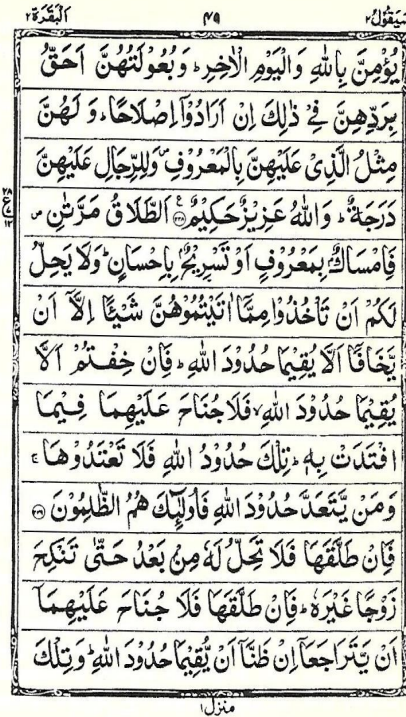 سَيَقُوْلُ٢ ٤٩ اَلْبَقَرَة٢
يُؤْمِنَّ بِاللهِ وَالْيَوْمِ الْاٰخِرِ ؕ وَبُعُوْلَتُهُنَّ اَحَقُّ
بِرَدِّهِنَّ فِيْ ذٰلِكَ اِنْ اَرَادُوْۤا اِصْلَاحًا ؕ وَ لَهُنَّ
مِثْلُ الَّذِيْ عَلَيْهِنَّ بِالْمَعْرُوْفِ ۪ وَلِلرِّجَالِ عَلَيْهِنَّ
دَرَجَةٌ ؕ وَاللهُ عَزِيْزٌ حَكِيْمٌ ﴿٢٢٨﴾ اَلطَّلَاقُ مَرَّتٰنِ ۪
فَاِمْسَاكٌۢ بِمَعْرُوْفٍ اَوْ تَسْرِيْحٌۢ بِاِحْسَانٍ ؕ وَلَا يَحِلُّ
لَكُمْ اَنْ تَاْخُذُوْا مِمَّاۤ اٰتَيْتُمُوْهُنَّ شَيْـًٔا اِلَّاۤ اَنْ
يَّخَافَاۤ اَلَّا يُقِيْمَا حُدُوْدَ اللهِ ؕ فَاِنْ خِفْتُمْ اَلَّا
يُقِيْمَا حُدُوْدَ اللهِ ۙ فَلَا جُنَاحَ عَلَيْهِمَا فِيْمَا
افْتَدَتْ بِهٖ ؕ تِلْكَ حُدُوْدُ اللهِ فَلَا تَعْتَدُوْهَا ۚ
وَمَنْ يَّتَعَدَّ حُدُوْدَ اللهِ فَاُولٰٓئِكَ هُمُ الظّٰلِمُوْنَ ﴿٢٢٩﴾
فَاِنْ طَلَّقَهَا فَلَا تَحِلُّ لَهٗ مِنْۢ بَعْدُ حَتّٰى تَنْكِحَ
زَوْجًا غَيْرَهٗ ؕ فَاِنْ طَلَّقَهَا فَلَا جُنَاحَ عَلَيْهِمَاۤ
اَنْ يَّتَرَاجَعَاۤ اِنْ ظَنَّاۤ اَنْ يُّقِيْمَا حُدُوْدَ اللهِ ؕ وَتِلْكَ
منزل١